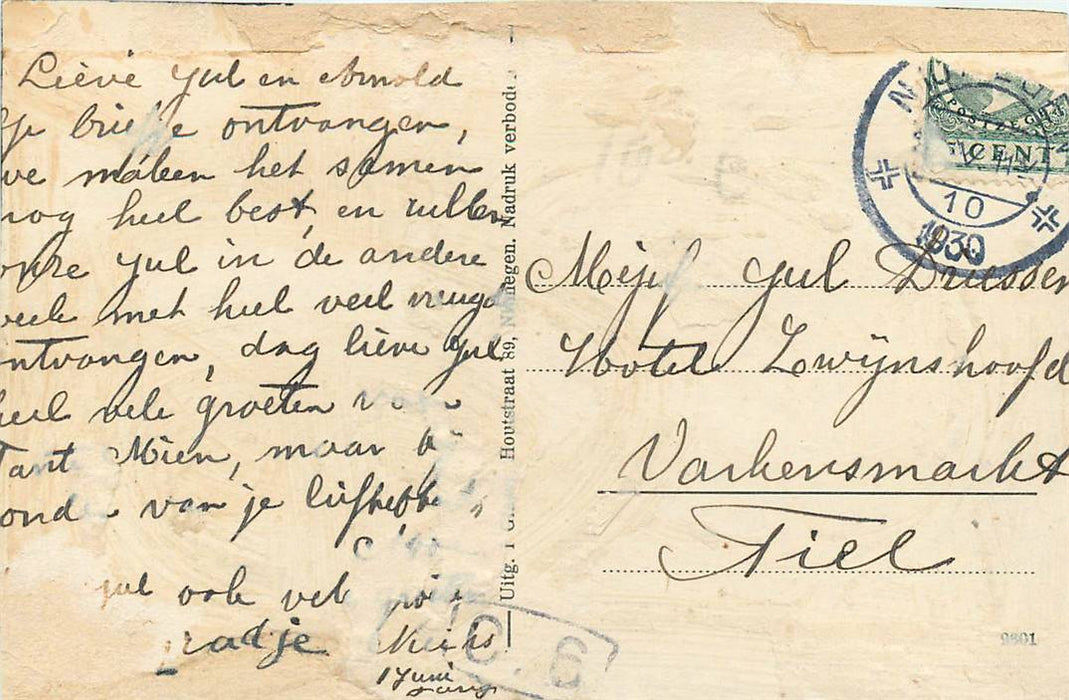 Liéve Jul en Arnold
briefje ontvangen,
we maken het samen
nog heel best, en zullen
onze Jul in de andere
met heel veel vreugd
ontvangen, dag liéve Jul
heel vele groeten van
Tant Mien, maar
van je liefhebbe
Jul ook vel
radje
1 Juni
Uitg. Houtstraat 89, Nijmegen. Nadruk verboden
POSTZEGEL
CENT
10
1930
Mejuf Jul Driessen
Hotel Zwijnshoofd
Varkensmarkt
Tiel